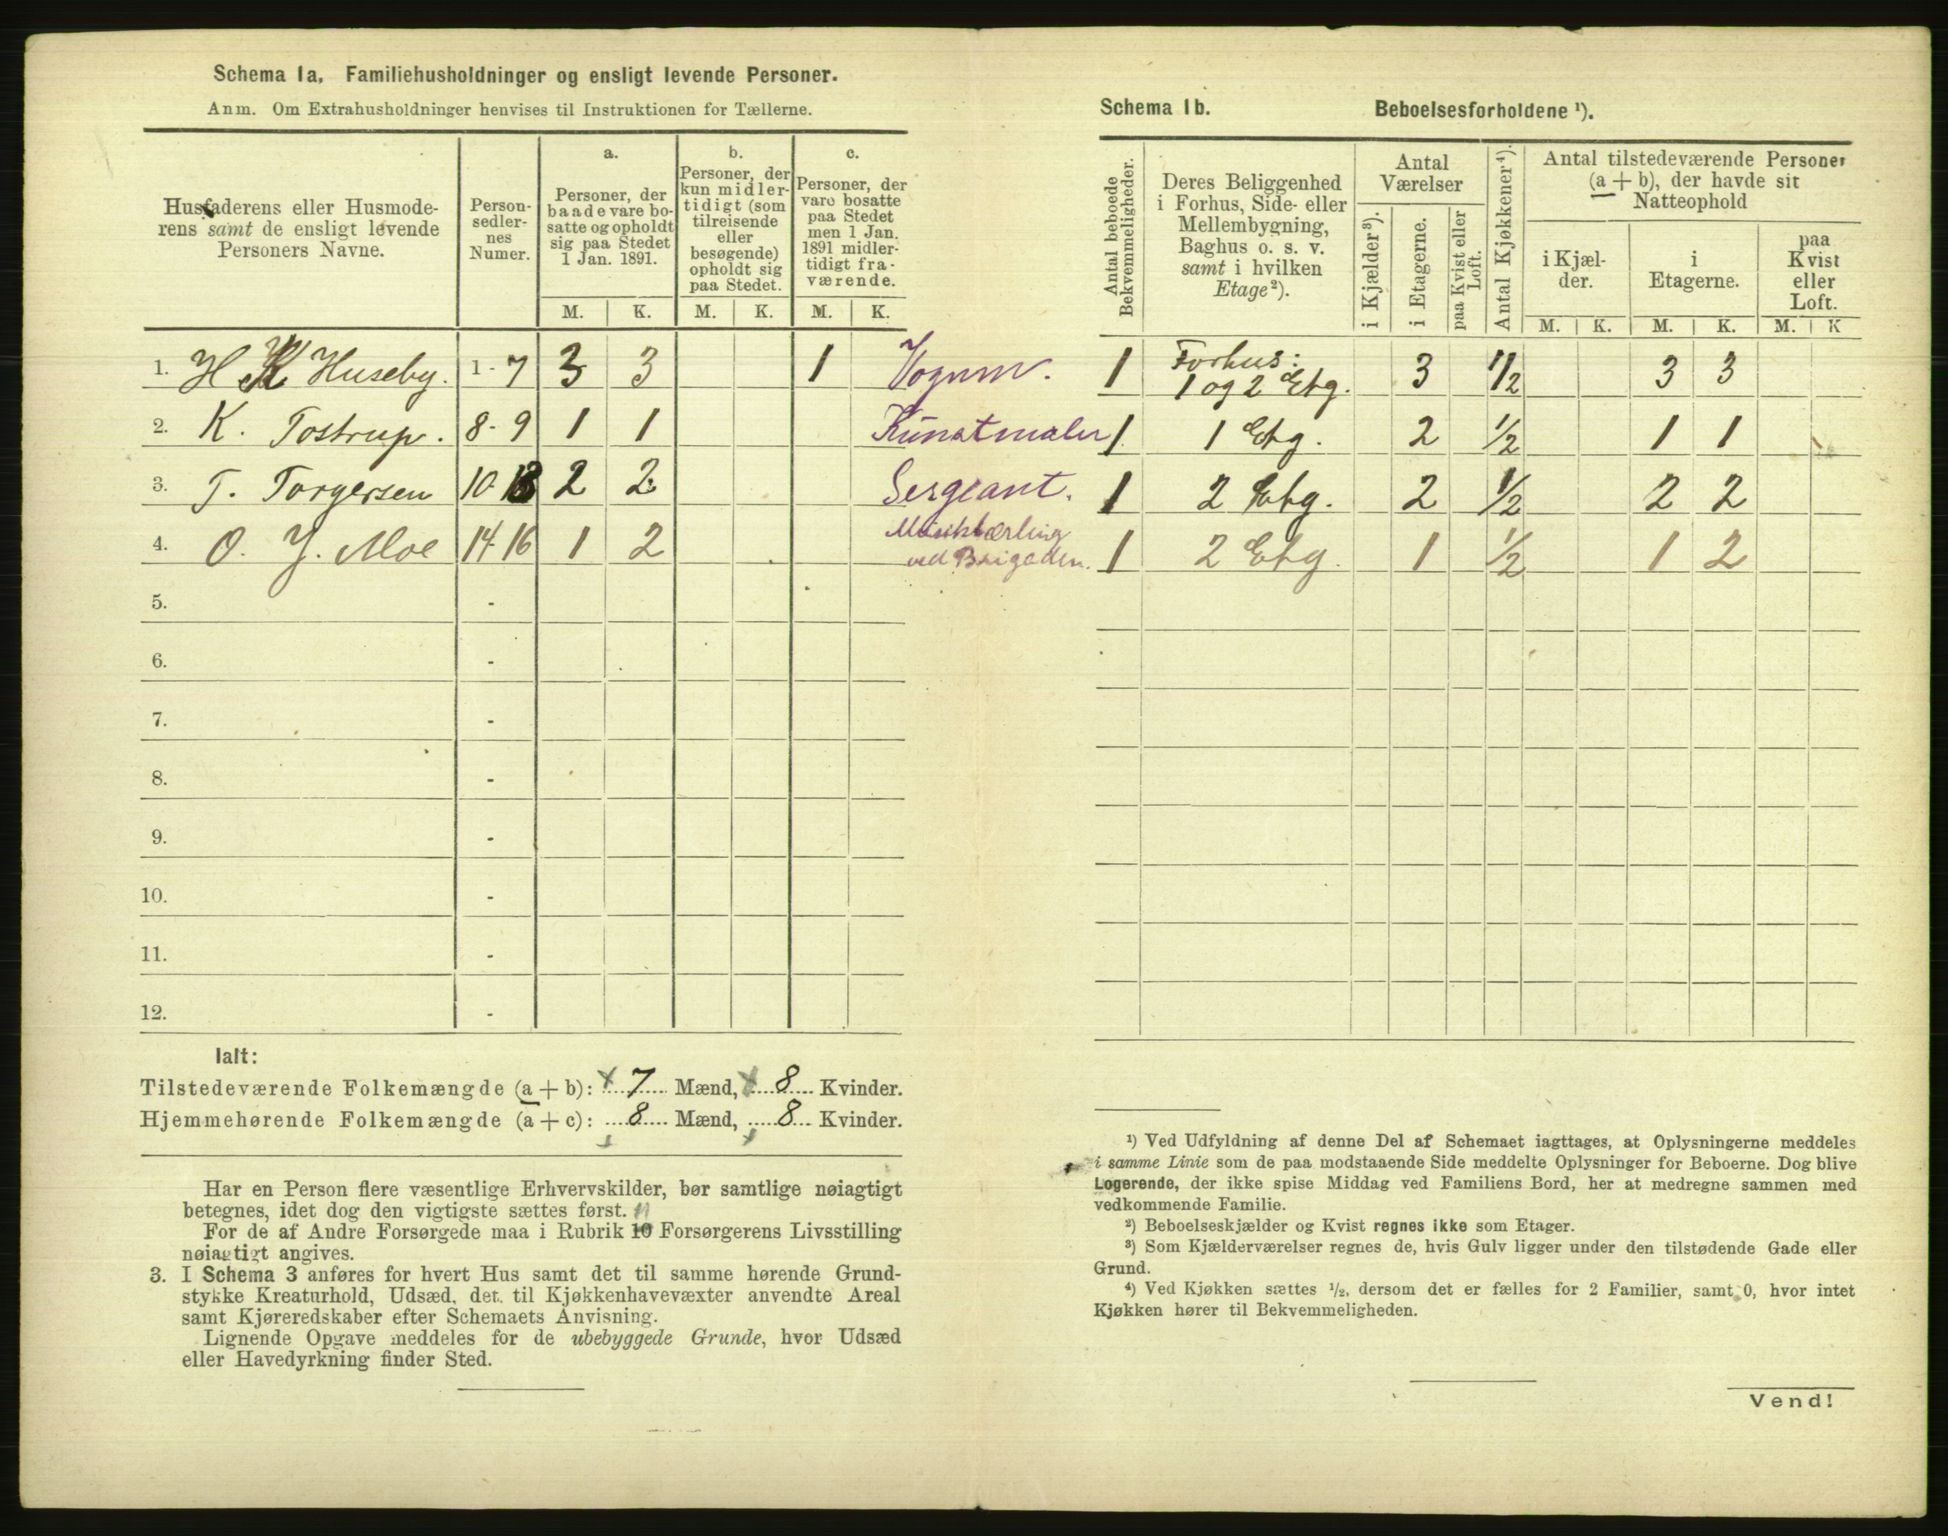 Schema 1a. Familiehusholdninger og ensligt levende Personer.
Anm. Om Extrahusholdninger henvises til Instruktionen for Tællerne.
Husfaderens eller Husmode-
rens samt de ensligt levende
Personers Navne.
Person-
sedler-
nes
Numer.
a.
Personer, der
baade vare bo-
satte og opholdt
sig paa Stedet
1 Jan. 1891.
b.
Personer, der
kun midler-
tidigt (som
tilreisende
eller
besøgende)
opholdt sig
paa Stedet.
c.
Personer, der
vare bosatte
paa Stedet
men 1 Jan.
1891 midler-
tidigt fra-
værende.
M. K. M. K. M. K.
1. H. K. Huseby. 1-7 3 3 1
2. K. Tostrup. 8-9 1 1 Kunstmaler
3. T. Torgersen 10-13 2 2 Sergeant.
4. O. J. Moe 14-16 1 2
ved Brigaden.
5. -
6. -
7. -
8. -
9. -
10. -
11. -
12. -
Ialt:
Tilstedeværende Folkemængde (a + b): 7 Mænd, 8 Kvinder.
Hjemmehørende Folkemængde (a + c): 8 Mænd, 8 Kvinder.
Har en Person flere væsentlige Erhvervskilder, bør samtlige nøiagtigt
betegnes, idet dog den vigtigste sættes først.
For de af Andre Forsørgede maa i Rubrik 10 Forsørgerens Livsstilling
nøiagtigt angives.
3. I Schema 3 anføres for hvert Hus samt det til samme hørende Grund-
stykke Kreaturhold, Udsæd, det til Kjøkkenhavevæxter anvendte Areal
samt Kjøreredskaber efter Schemaets Anvisning.
Lignende Opgave meddeles for de ubebyggede Grunde, hvor Udsæd
eller Havedyrkning finder Sted.
Schema 1b. Beboelsesforholdene ¹).
Antal beboede
Bekvemmeligheder.
Deres Beliggenhed
i Forhus, Side- eller
Mellembygning,
Baghus o. s. v.
samt i hvilken
Etage ²).
Antal
Værelser
i Kjælder ³).
i Etagerne.
paa Kvist eller
Loft.
Antal Kjøkkener ⁴).
Antal tilstedeværende Personer
(a + b), der havde sit
Natteophold
i Kjæl-
der.
i
Etagerne.
paa
Kvist
eller
Loft.
M. K. M. K. M. K
1 Forhus:
1 og 2 Etg. 3 1/2 3 3
1 1 Etg. 2 1/2 1 1
1 2 Etg. 2 1/2 2 2
1 2 Etg. 1 1/2 1 2
¹) Ved Udfyldning af denne Del af Schemaet iagttages, at Oplysningerne meddeles
i samme Linie som de paa modstaaende Side meddelte Oplysninger for Beboerne. Dog blive
Logerende, der ikke spise Middag ved Familiens Bord, her at medregne sammen med
vedkommende Familie.
²) Beboelseskjælder og Kvist regnes ikke som Etager.
³) Som Kjælderværelser regnes de, hvis Gulv ligger under den tilstødende Gade eller
Grund.
⁴) Ved Kjøkken sættes ½, dersom det er fælles for 2 Familier, samt 0, hvor intet
Kjøkken hører til Bekvemmeligheden.
Vend!